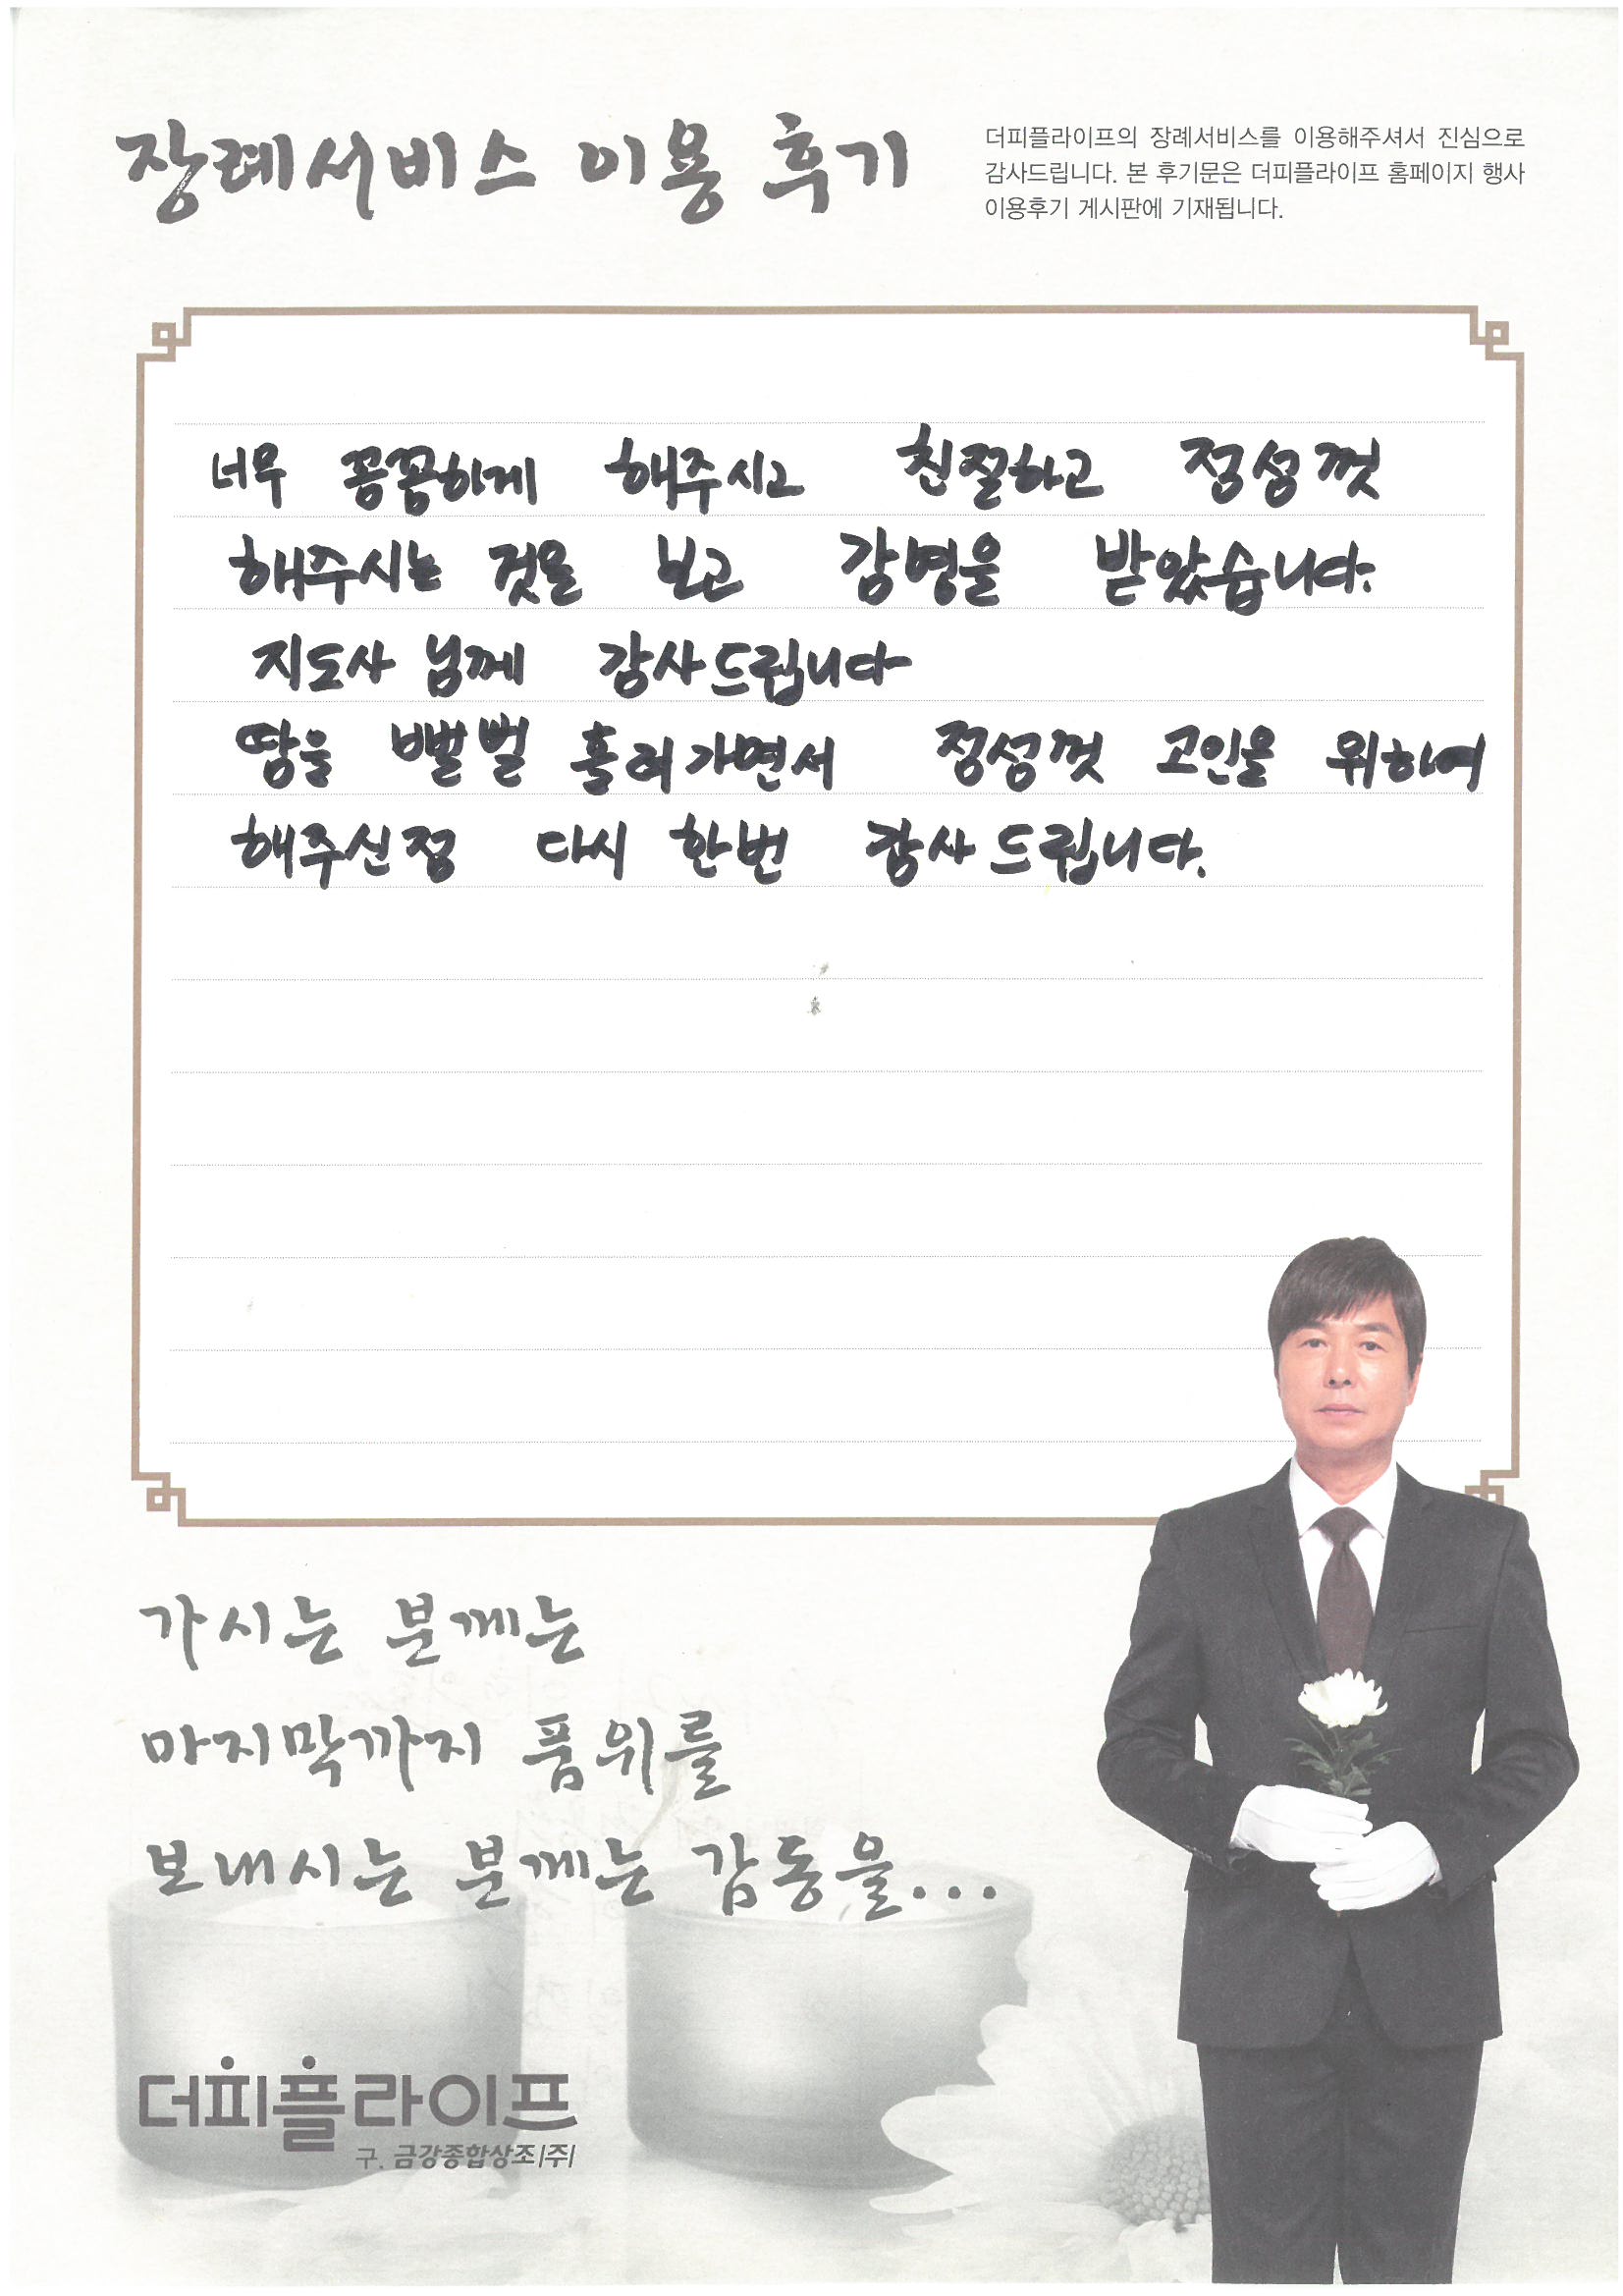 장례서비스 이용 후기
더피플라이프의 장례서비스를 이용해주셔서 진심으로
감사드립니다. 본 후기문은 더피플라이프 홈페이지 행사
이용후기 게시판에 기재됩니다.
너무 꼼꼼하게 해주시고 친절하고 정성껏
해주시는 것을 보고 감명을 받았습니다.
지도사 님께 감사드립니다
땀을 뻘뻘 흘려가면서 정성껏 고인을 위하여
해주신점 다시 한번 감사드립니다.
가시는 분께는
마지막까지 품위를
보내시는 분께는 감동을...
더피플라이프
구. 금강종합상조|주|